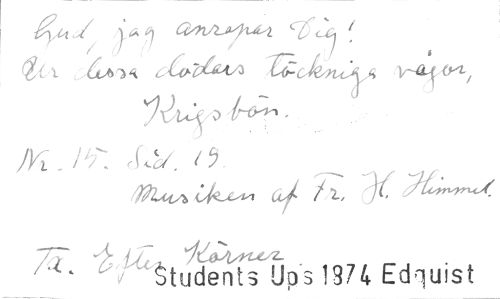 Gud, jag anropar Dig!
Ur dessa dödars töckniga vågor,
Krigsbön.
Nr. 15. Sid. 19.
Musiken af Fr. H. Himmel.
Tx. Efter Körner
Students Ups 1874 Edquist